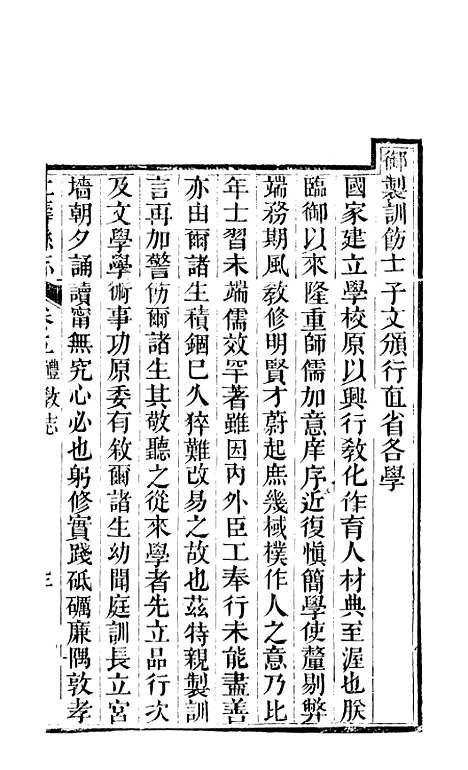 御製訓飭士子文頒行直省各學
國家建立學校原以興行教化作育人材典至渥也朕
臨御以來隆重師儒加意庠序近復慎簡學使釐剔弊
端務期風教修明賢才蔚起庶幾棫樸作人之意乃比
年士習未端儒效罕著雖因內外臣工奉行未能盡善
亦由爾諸生積錮已久猝難改易之故也茲特親製訓
言再加警飭爾諸生其敬聽之從來學者先立品行次
及文學學術事功原委有敘爾諸生幼聞庭訓長立宮
墻朝夕誦讀甯無究心必也躬修實踐砥礪廉隅敦孝
縣志 卷五 禮教志 三